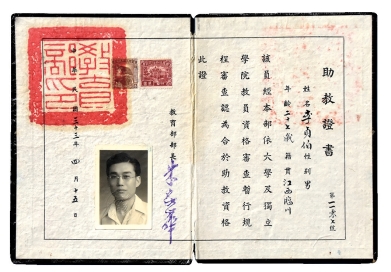 助教證書
姓名李貞伯性別男
年齡三十五歲籍貫江西臨川
該員經本部依大學及獨立
學院教員資格審查暫行規
程審查認為合於助教資格
此證
教育部部長
中華民國三十三年四月十五日